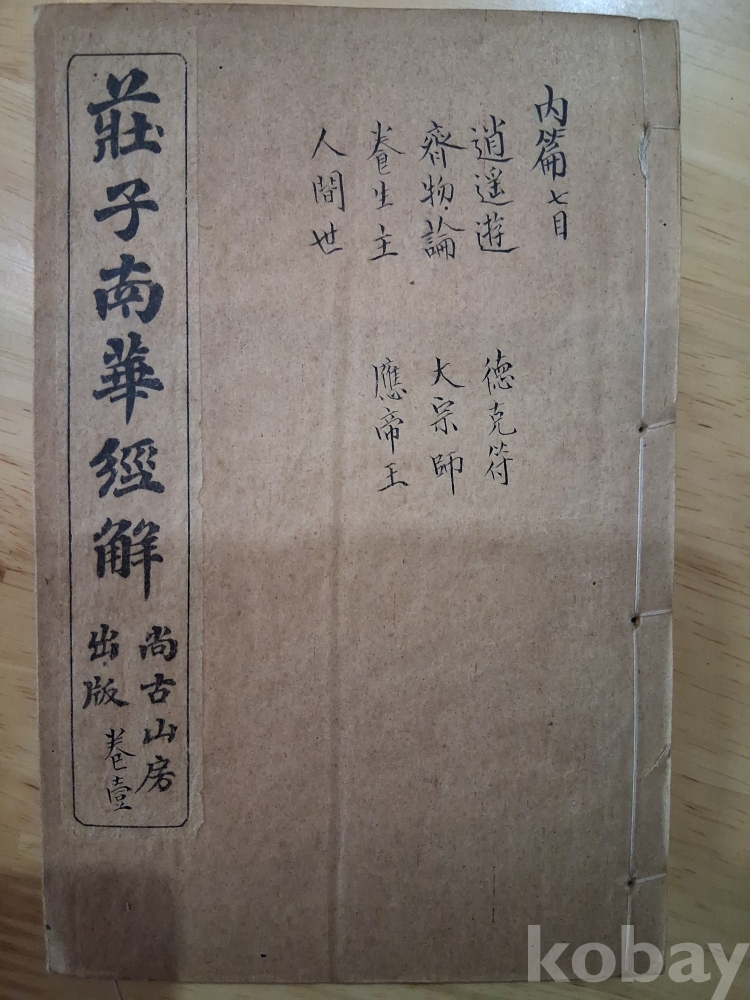 內篇七目
逍遥遊
齊物論
養生主
人間世
德充符
大宗師
應帝王
莊子南華經解
尚古山房
出版
卷壹
kobay